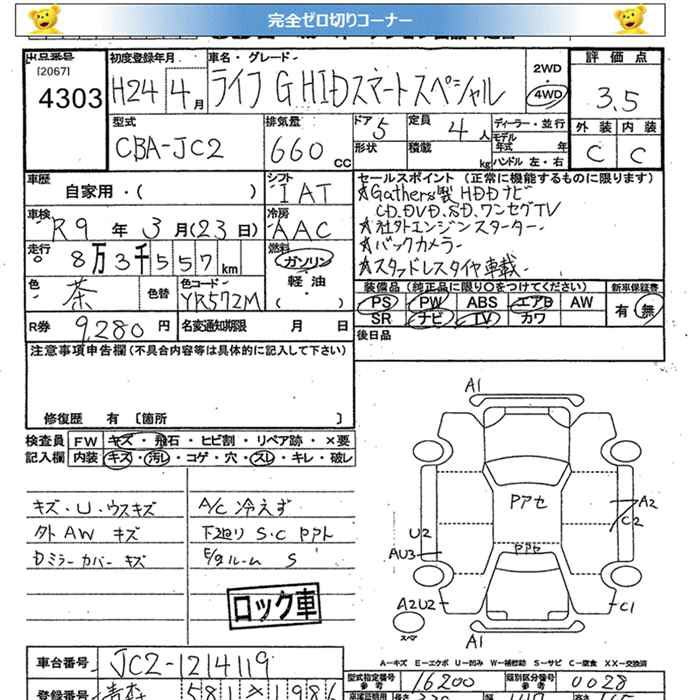 完全ゼロ切りコーナー
出品番号
[2067]
4303
初度登録年月
H24 4月
車名・グレード
ライフ G HIDスマートスペシャル
2WD
・
4WD
評価点
3.5
外装 内装
C C
型式
CBA-JC2
排気量
660 cc
ドア 5
定員 4 人
形状
積載 kg
ディーラー・並行
モデル
年式 年
ハンドル 左・右
車歴
自家用・( )
シフト
IAT
車検
R9 年 3月(23日)
冷房
AAC
走行
8万3千557km
燃料
ガソリン
軽油
( )
色
茶
色替
色コード
YR572M
R券 9,280円
名変通知期限 月 日
セールスポイント (正常に機能するものに限ります)
★Gathers製 HDDナビ
CD.DVD.SD.ワンセグTV
★社外エンジンスターター
★バックカメラー
★スタッドレスタイヤ車載
装備品(純正品に限り○をつけてください)
PS PW ABS エアB AW
SR ナビ TV カワ
新車保証書
有・無
後日品
注意事項申告欄(不具合内容等は具体的に記入して下さい)
修復歴 有 〔箇所 〕
検査員 FW キズ・飛石・ヒビ割・リペア跡・×要
記入欄 内装 キズ・汚レ・コゲ・穴・スレ・キレ・破レ
キズ・U・ウスキズ
外 AW キズ
Dミラーカバー キズ
A/C 冷えず
下廻り S・C PPト
E/gルーム S
ロック車
A1
PPアセ
PPアセ
A2
C2
U2
AU3
A2U2
C1
スペア
A1
A-キズ E-エクボ U-凹み W-補修跡 S-サビ C-腐食 XX-交換済
車台番号 JC2-1214119
型式指定番号
参考
16200
類別区分番号
参考
0028
登録番号 青森 581 1986
長さ
高さ